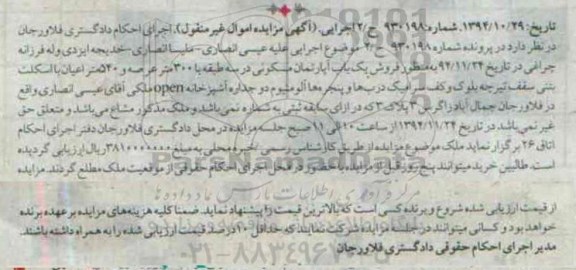 تاریخ: ۱۳۹۴/۱۰/۲۹. شماره: ۹۳۰۱۹۸ ح/۲ اجرایی. (آگهی مزایده اموال غیرمنقول). اجرای احکام دادگستری فلاورجان
در نظر دارد در پرونده شماره ۹۳۰۱۹۸ ح/۲ موضوع اجرایی علیه عیسی انصاری-ملیسا انصاری-خدیجه ایزدی وله فرزانه
چراغی در تاریخ ۹۴/۱۱/۲۴ به منظور فروش یک باب آپارتمان مسکونی در سه طبقه با ۳۰۰ متر عرصه و ۵۲۰ متر اعیان با اسکلت
بتنی سقف تیرچه بلوک وکف سرامیک درب‌ها و پنجره‌ها آلومنیوم دو جداره آشپزخانه open ملکی آقای عیسی انصاری واقع
در فلاورجان جمال آباد زاگرس ۳ پلاک ۳ که در ازای سابقه ثبتی به شماره نمی باشد و ملک مذکور مشاع می باشد و متعلق حق
غیر نمی باشد در تاریخ ۱۳۹۴/۱۱/۲۴ از ساعت ۱۰ الی ۱۱ صبح جلسه مزایده در محل دادگستری فلاورجان دفتر اجرای احکام
اتاق ۲۶ برگزار نماید ملک موضوع مزایده از طریق کارشناس رسمی/خبره محلی به مبلغ ۳۸۱۰۰۰۰۰۰۰ ریال ارزیابی گردیده
است. طالبین خرید میتوانند پنج روز قبل از مزایده با حضور در محل اجرای احکام حقوقی از موقعیت ملک مطلع گردند. مزایده
ParsNamadData
مرکز فرآوری اطلاعات پارس نماد داده ها
از قیمت ارزیابی شده شروع و برنده کسی است که بالاترین قیمت را پیشنهاد نماید. ضمنا کلیه هزینه‌های مزایده بر عهده برنده
خواهد بود و کسانی میتوانند در جلسه مزایده شرکت نمایند که حداقل ۱۰ درصد قیمت ارزیابی شده را به همراه داشته باشند.
مدیر اجرای احکام حقوقی دادگستری فلاورجان